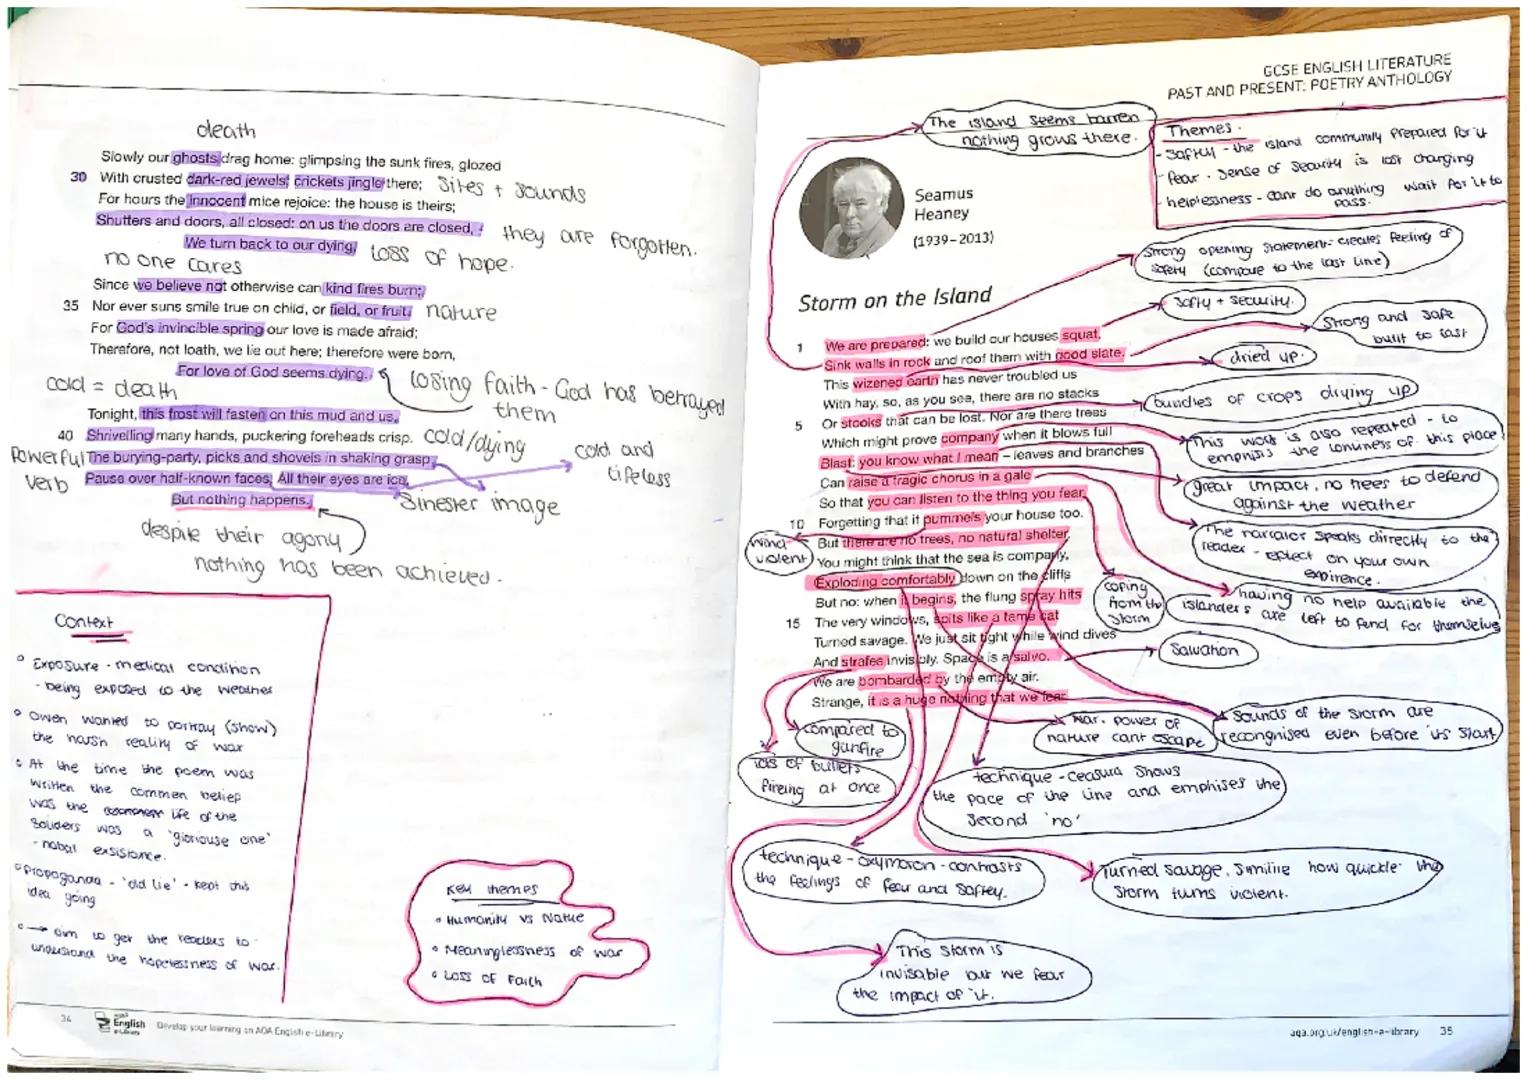 death
Slowly our ghosts drag home: glimpsing the sunk fires, glozed
30 With crusted dark-red jewels; crickets jingle there; Sites + Sounds
For hours the innocent mice rejoice: the house is theirs;
Shutters and doors, all closed: on us the doors are closed, - they are forgotten.
We turn back to our dying. Loss of hope.
no one cares
Since we believe not otherwise can kind fires burn;
35 Nor ever suns smile true on child, or field, or fruit. nature
For God's invincible spring our love is made afraid;
Therefore, not loath, we lie out here; therefore were born,
For love of God seems dying. losing faith - God has betrayed them
cold = death
Tonight, this frost will fasten on this mud and us,
40 Shrivelling many hands, puckering foreheads crisp. cold/dying
Powerful verb
The burying-party, picks and shovels in shaking grasp, cold and lifeless
Pause over half-known faces. All their eyes are ice,
But nothing happens. Sinester image
despite their agony
nothing has been achieved.
Context
Exposure - medical condition
- being exposed to the weather
Owen wanted to portray (show)
the harsh reality of war
At the time the poem was
written the common belief
was the life of the
Soliders was a 'gloriouse one'
- nobal exsistance.
Propaganda - 'old lie' - kept this
idea going
→ aim to get the readers to
undustand the hopelessness of war.
Key themes
Humanity vs Natue
Meaninglessness of war
Loss of Faith
34
AQA
English
e-Library
Develop your learning on AQA English e-Library
GCSE ENGLISH LITERATURE
PAST AND PRESENT: POETRY ANTHOLOGY
The island seems barren
nothing grows there.
Themes.
- Saftey - the island community prepared for it
- fear - sense of security is lost charging
- helplessness - cant do anything wait for it to
pass.
Seamus
Heaney
(1939–2013)
Strong opening statement - creates feeling of
safety (compare to the last line)
Storm on the Island
Safty + security.
Strong and safe
built to last
1 We are prepared: we build our houses squat,
Sink walls in rock and roof them with good slate.
dried up.
This wizened earth has never troubled us
With hay, so, as you see, there are no stacks
bundles of crops drying up
5 Or stooks that can be lost. Nor are there trees
Which might prove company when it blows full
This word is also repeated - to
emphsis the lonliness of this place
Blast: you know what I mean – leaves and branches
Can raise a tragic chorus in a gale
great impact, no trees to defend
against the weather
So that you can listen to the thing you fear
10 Forgetting that it pummels your house too.
wind violent
But there are no trees, no natural shelter.
The narrator speaks dirrectly to the
reader - on your own
expirence.
You might think that the sea is company,
Exploding comfortably down on the cliffs
coping
from the
storm
having no help available the
islanders are left to fend for themselves
But no: when it begins, the flung spray hits
15 The very windows, spits like a tame cat
Turned savage. We just sit tight while wind dives
Salvation
And strafes invisibly. Space is a salvo.
We are bombarded by the empty air.
Strange, it is a huge nothing that we fear.
compared to
gunfire
war. power of
nature cant escape
Sounds of the storm are
recongnised even before its start
lots of bullets
fireing at once
technique - ceasura shows
the pace of the line and emphises the
second 'no'
technique - oxymoron - contrasts
the feelings of fear and saftey.
Turned savage. Similie how quickle the
storm turns violent.
This storm is
invisable but we fear
the impact of it.
aqa.org.uk/english-e-library 35